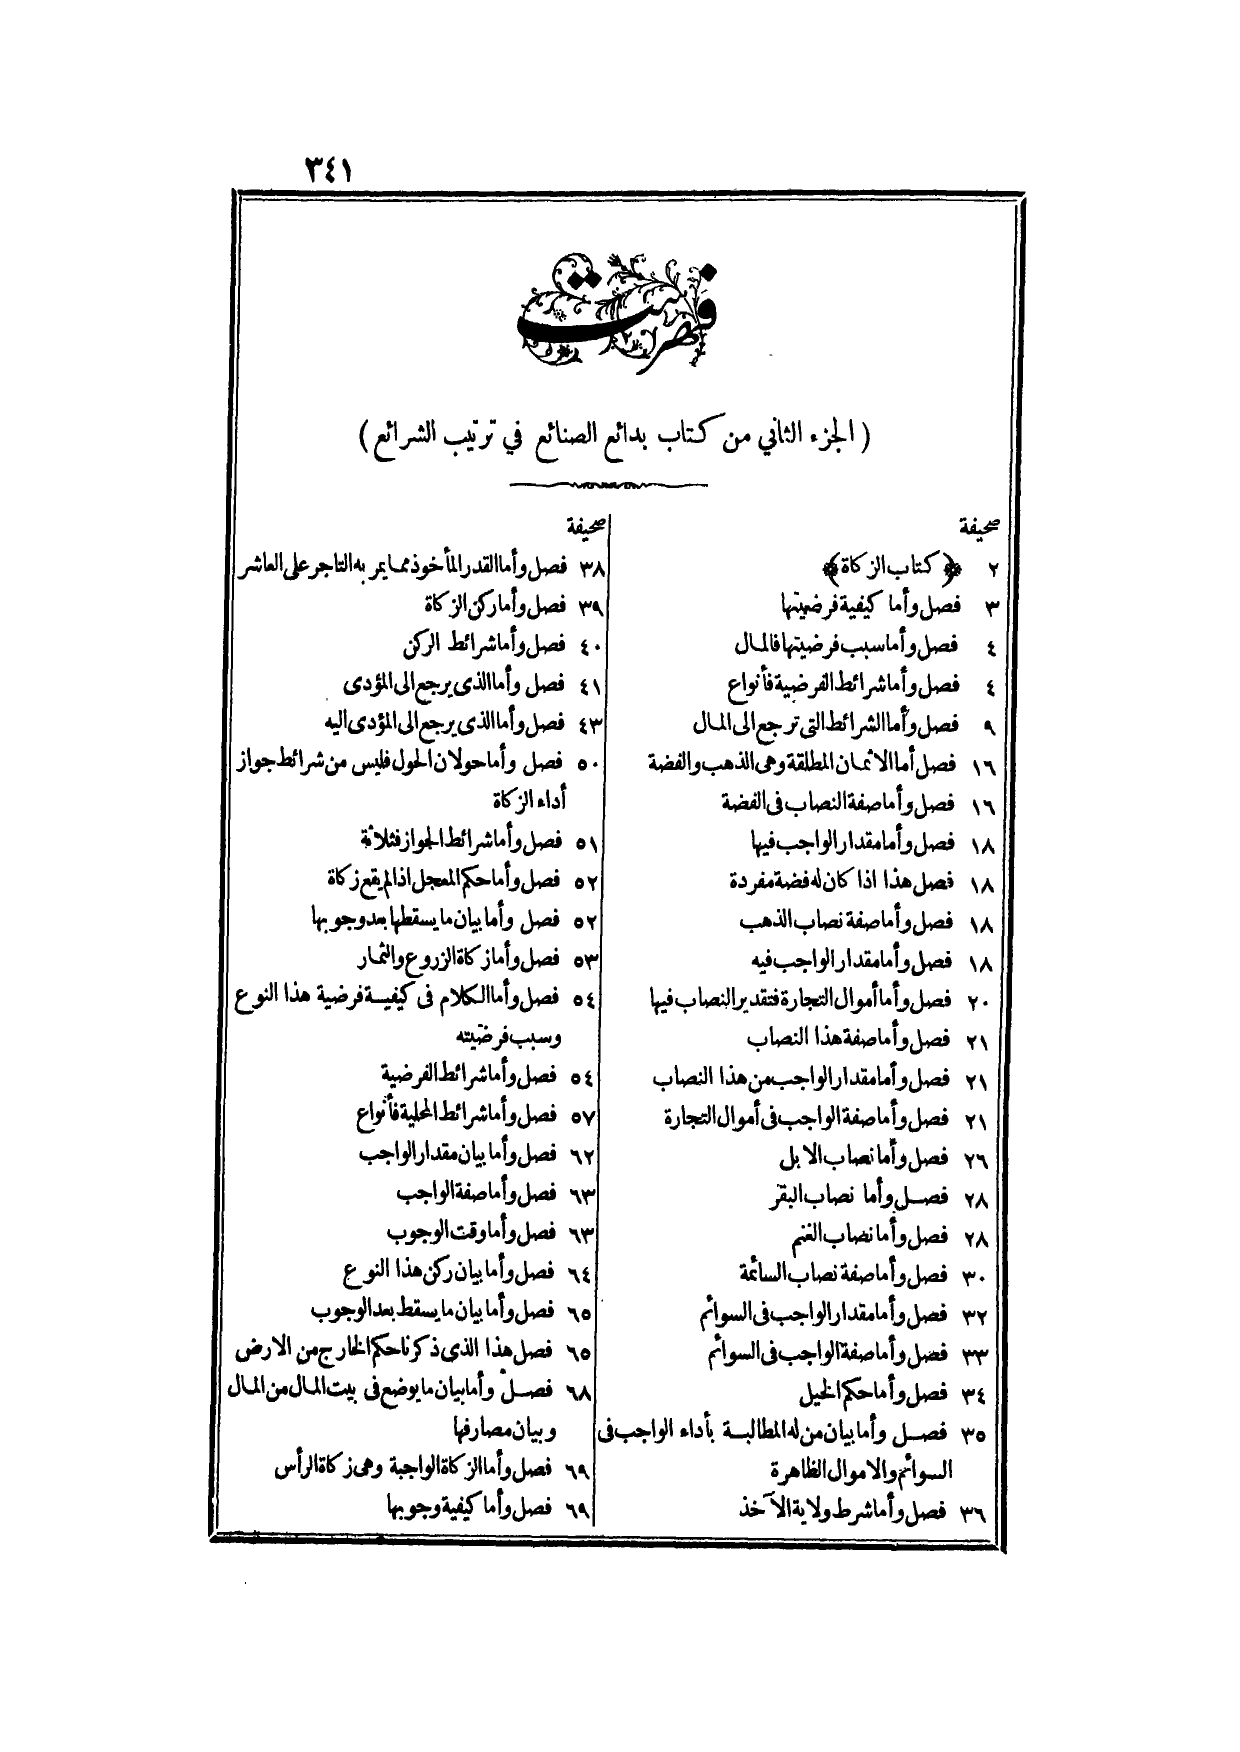 ٣٤١
فهرست
( الجزء الثاني من كتاب بدائع الصنائع في ترتيب الشرائع )
صحيفة
٢ ﴿ كتاب الزكاة ﴾
٣ فصل وأما كيفية فرضيتها
٤ فصل وأما سبب فرضيتها فالمال
٤ فصل وأما شرائط الفرضية فأنواع
٩ فصل وأما الشرائط التى ترجع الى المال
١٦ فصل أما الاثمان المطلقة وهى الذهب والفضة
١٦ فصل وأما صفة النصاب فى الفضة
١٨ فصل وأما مقدار الواجب فيها
١٨ فصل هذا اذا كان له فضة مفردة
١٨ فصل وأما صفة نصاب الذهب
١٨ فصل وأما مقدار الواجب فيه
٢٠ فصل وأما أموال التجارة فتقدير النصاب فيها
٢١ فصل وأما صفة هذا النصاب
٢١ فصل وأما مقدار الواجب من هذا النصاب
٢١ فصل وأما صفة الواجب فى أموال التجارة
٢٦ فصل وأما نصاب الابل
٢٨ فصل وأما نصاب البقر
٢٨ فصل وأما نصاب الغنم
٣٠ فصل وأما صفة نصاب السائمة
٣٢ فصل وأما مقدار الواجب فى السوائم
٣٣ فصل وأما صفة الواجب فى السوائم
٣٤ فصل وأما حكم الخيل
٣٥ فصل وأما بيان من له المطالبة بأداء الواجب فى
السوائم والاموال الظاهرة
٣٦ فصل وأما شرط ولاية الآخذ
صحيفة
٣٨ فصل وأما القدر المأخوذ مما يمر به التاجر على العاشر
٣٩ فصل وأما ركن الزكاة
٤٠ فصل وأما شرائط الركن
٤١ فصل وأما الذى يرجع الى المؤدى
٤٣ فصل وأما الذى يرجع الى المؤدى اليه
٥٠ فصل وأما حولان الحول فليس من شرائط جواز
أداء الزكاة
٥١ فصل وأما شرائط الجواز فثلاثة
٥٢ فصل وأما حكم المعجل اذا لم يقع زكاة
٥٢ فصل وأما بيان ما يسقطها بعد وجوبها
٥٣ فصل وأما زكاة الزروع والثمار
٥٤ فصل وأما الكلام فى كيفية فرضية هذا النوع
وسبب فرضيته
٥٤ فصل وأما شرائط الفرضية
٥٧ فصل وأما شرائط المحلية فأنواع
٦٢ فصل وأما بيان مقدار الواجب
٦٣ فصل وأما صفة الواجب
٦٣ فصل وأما وقت الوجوب
٦٤ فصل وأما بيان ركن هذا النوع
٦٥ فصل وأما بيان ما يسقط بعد الوجوب
٦٥ فصل هذا الذى ذكرنا حكم الخارج من الارض
٦٨ فصل وأما بيان ما يوضع فى بيت المال من المال
وبيان مصارفها
٦٩ فصل وأما الزكاة الواجبة وهى زكاة الرأس
٦٩ فصل وأما كيفية وجوبها